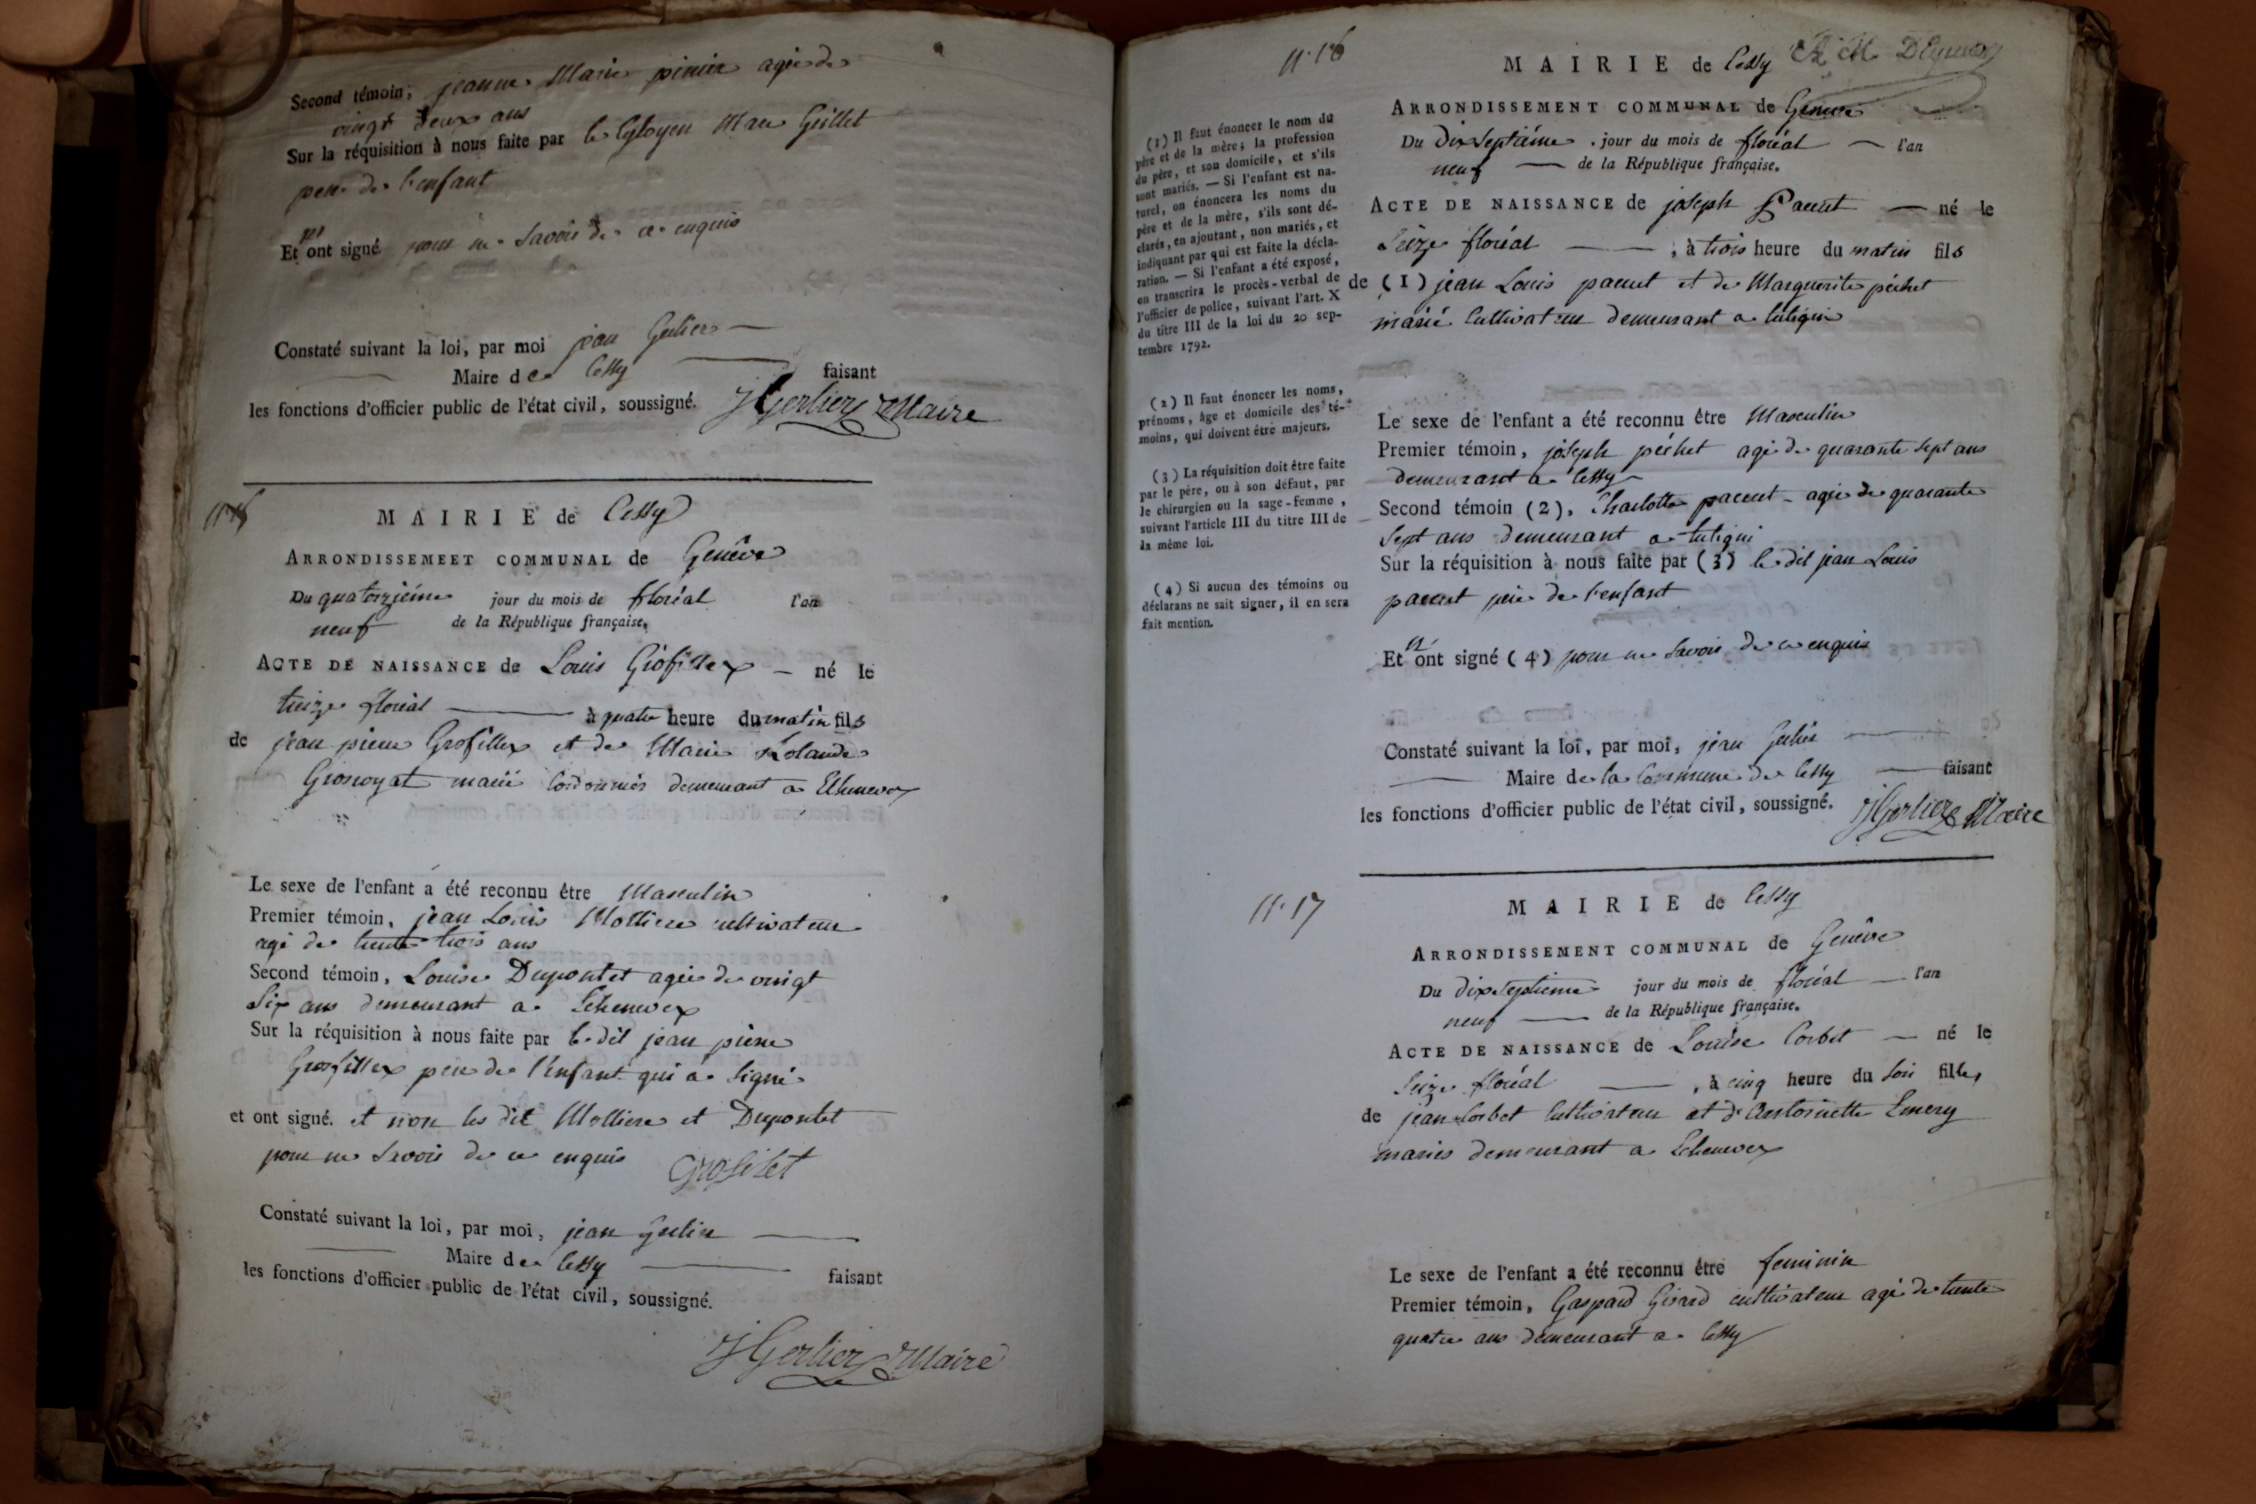 Second témoin, jeanne Marie pinier agée de
vingt deux ans
Sur la réquisition à nous faite par le Cytoyen Marc Geillet
pere de l'enfant
Et n'ont signé pour ne Savoir de ce enquis
Constaté suivant la loi, par moi jean Gerlier
Maire de Cessy faisant
les fonctions d'officier public de l'état civil, soussigné. J Gerlier Maire
MAIRIE de Cessy
ARRONDISSEMEET COMMUNAL de Genêve
Du quatorzieme jour du mois de floréal l'an
neuf de la République française.
ACTE DE NAISSANCE de Louis Grosfillex né le
treize floréal à quatre heure du matin fils
de jean pierre Grosfillex et de Marie Rolande
Grosroyat marié Cordonnier demeurant a Echenevex
Le sexe de l'enfant a été reconnu être Masculin
Premier témoin, jean Louis Molliere cultivateur
agé de trente trois ans
Second témoin, Louise Dupontet agée de vingt
Six ans demeurant a Echenevex
Sur la réquisition à nous faite par le dit jean pierre
Grosfillex pere de l'enfant qui a Signé
et ont signé. et non les dit Molliere et Dupontet
pour ne Savoir de ce enquis Grosfilet
Constaté suivant la loi, par moi, jean Gerlier
Maire de Cessy faisant
les fonctions d'officier public de l'état civil, soussigné.
J Gerlier Maire
N. 16
MAIRIE de Cessy
ARRONDISSEMENT COMMUNAL de Geneve
Du Dixseptième jour du mois de floréal l'an
neuf de la République française.
ACTE DE NAISSANCE de joseph Paccut né le
Seize floréal , à trois heure du matin fils
de (1) jean Louis paccut et de Marguerite péchet
marié Cultivateur demeurant a tutigni
(1) Il faut énoncer le nom du
père et de la mère; la profession
du père, et son domicile, et s'ils
sont mariés. — Si l'enfant est na-
turel, on énoncera les noms du
père et de la mère, s'ils sont dé-
clarés, en ajoutant, non mariés, et
indiquant par qui est faite la décla-
ration. — Si l'enfant a été exposé,
on transcrira le procès-verbal de
l'officier de police, suivant l'art. X
du titre III de la loi du 20 sep-
tembre 1792.
(2) Il faut énoncer les noms,
prénoms, âge et domicile des té-
moins, qui doivent être majeurs.
(3) La réquisition doit être faite
par le père, ou à son défaut, par
le chirurgien ou la sage-femme,
suivant l'article III du titre III de
la même loi.
(4) Si aucun des témoins ou
déclarans ne sait signer, il en sera
fait mention.
Le sexe de l'enfant a été reconnu être Masculin
Premier témoin, joseph péchet agé de quarante Sept ans
demeurant a Cessy
Second témoin (2), Charlotte paccut agée de quarante
Sept ans demeurant a tutigni
Sur la réquisition à nous faite par (3) le dit jean Louis
paccut pere de l'enfant
Et n'ont signé (4) pour ne Savoir de ce enquis
Constaté suivant la loi, par moi, jean Gerlier
Maire de la Commune de Cessy faisant
les fonctions d'officier public de l'état civil, soussigné. J Gerlier Maire
N. 17
MAIRIE de Cessy
ARRONDISSEMENT COMMUNAL de Genêve
Du dixseptieme jour du mois de floréal l'an
neuf de la République française.
ACTE DE NAISSANCE de Louise Corbet né le
Seize floréal , à cinq heure du Soir fille,
de jean Corbet Cultivateur et d'Antoinette Emery
mariés demeurant a Echenevex
Le sexe de l'enfant a été reconnu être feminin
Premier témoin, Gaspard Girard cultivateur agé de trente
quatre ans demeurant a Cessy